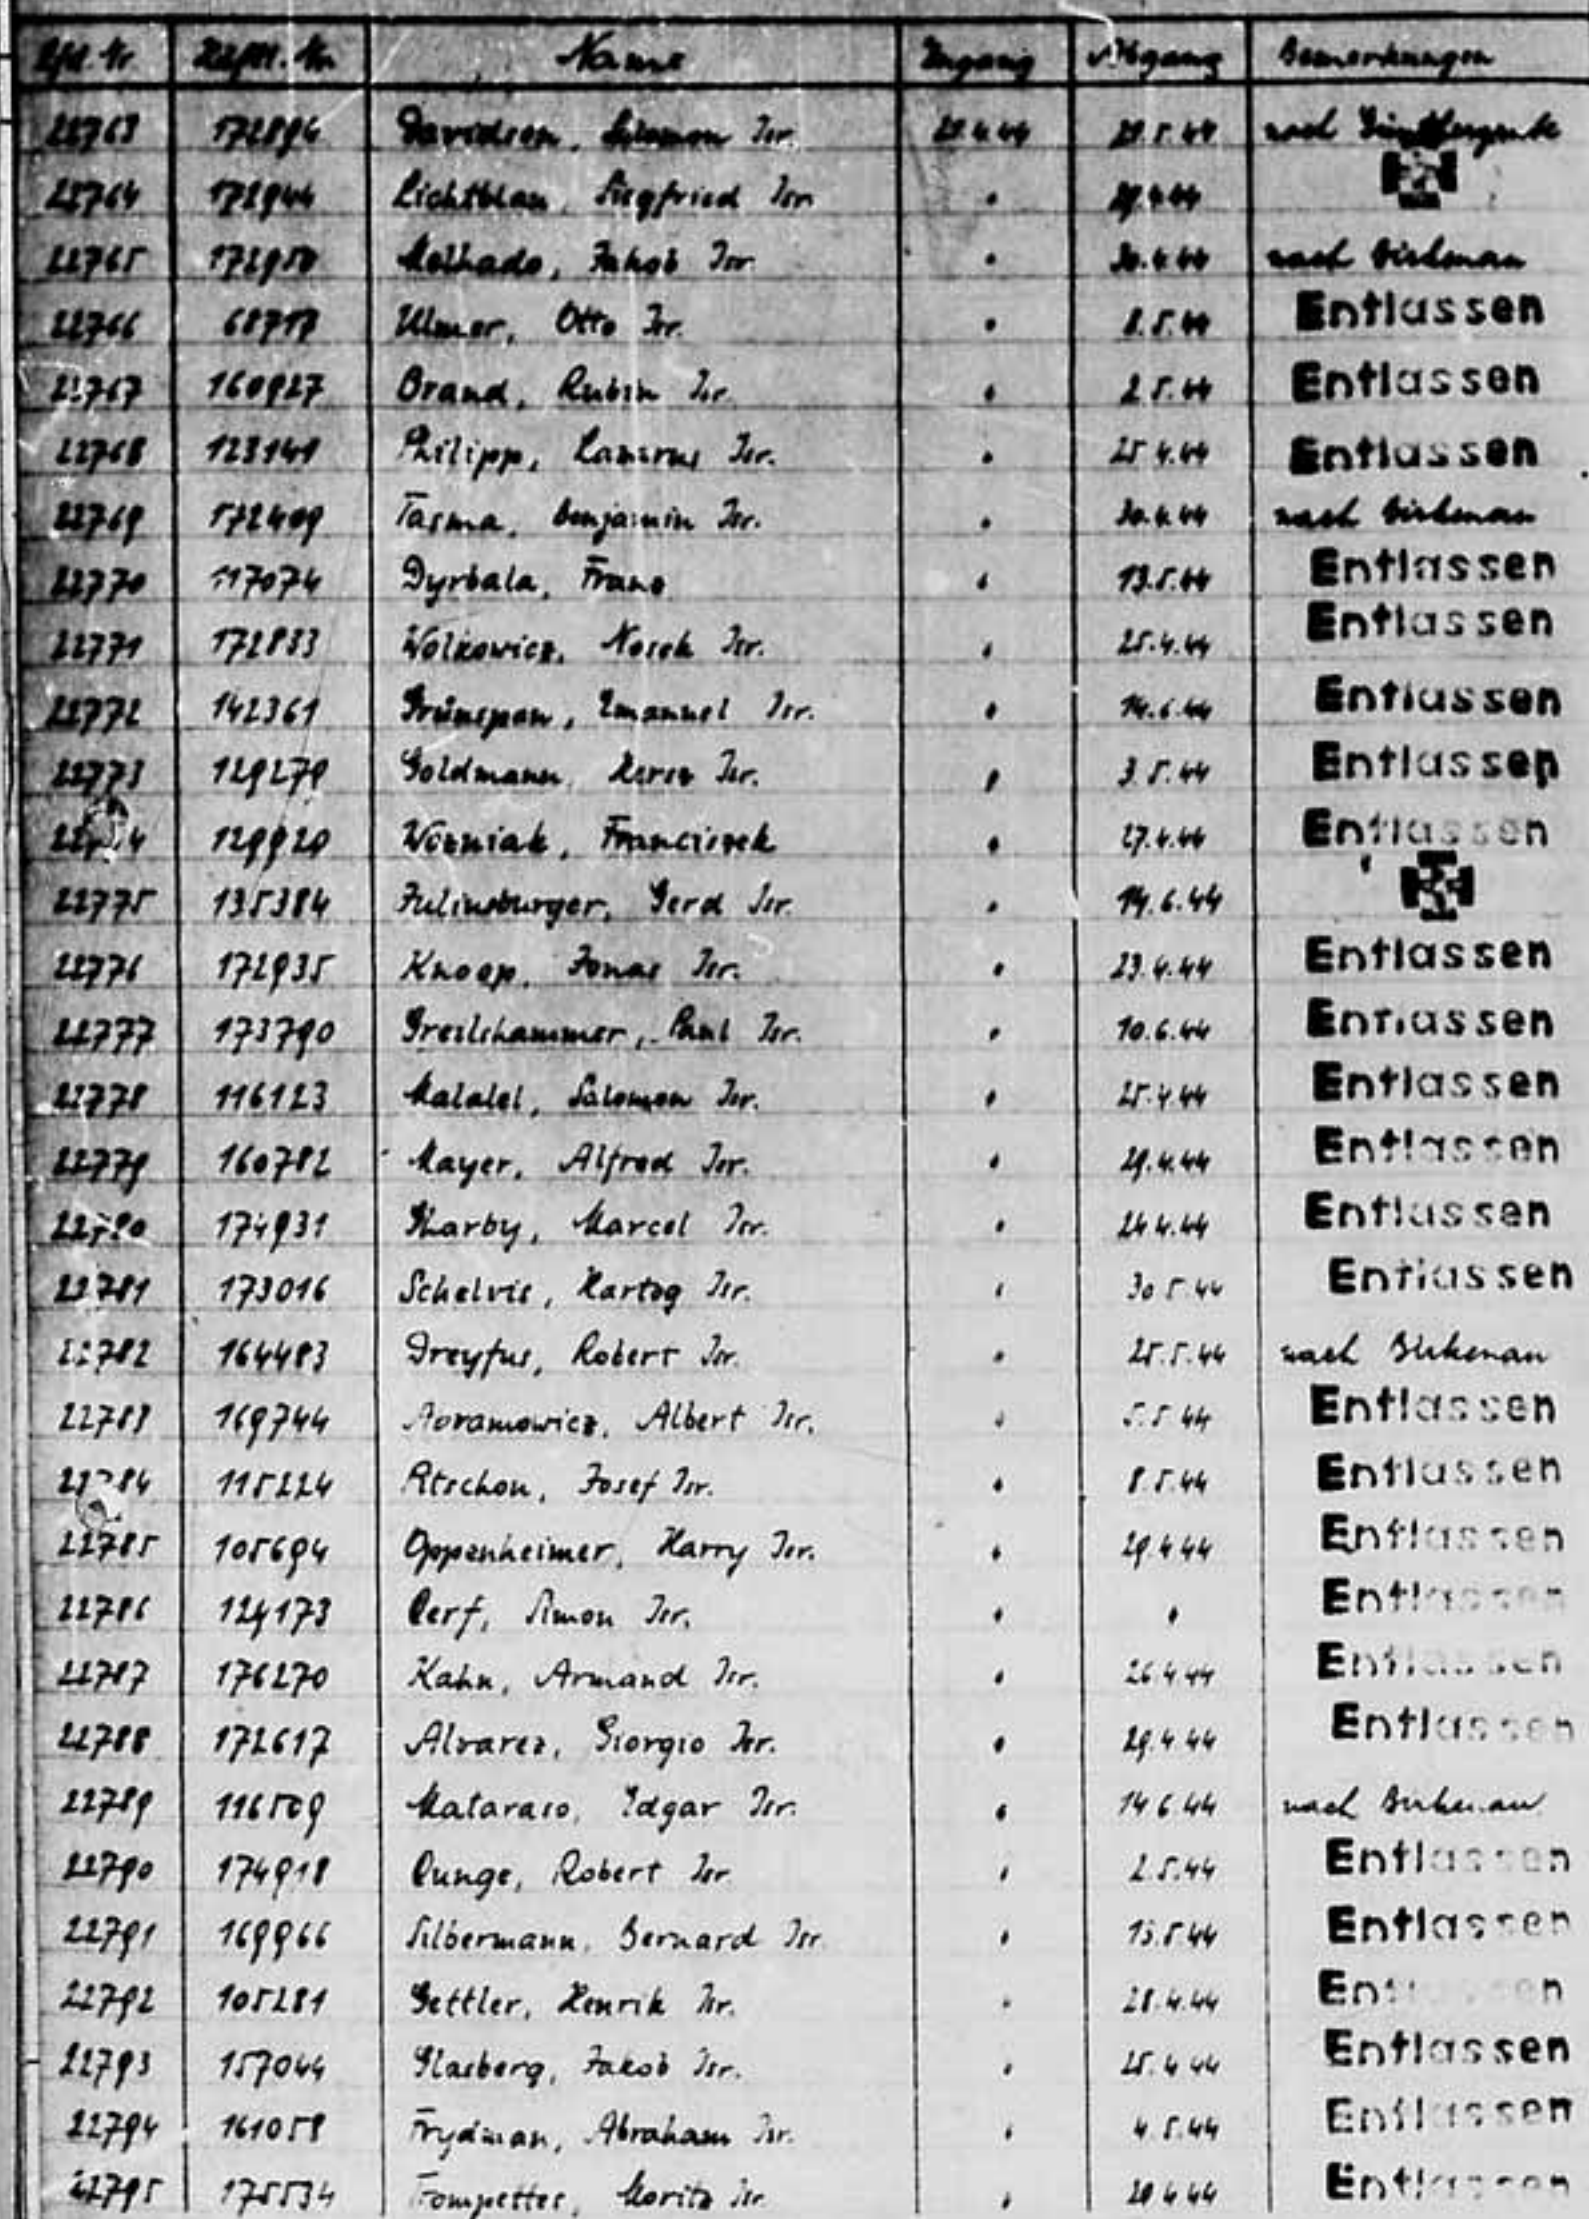 Lfd. Nr. Häftl. Nr. Name Zugang Abgang Bemerkungen
22763 172894 Davidson, Salomon Isr. 29.5.44 nach
22764 172944 Lichtblau, Siegfried Isr. 29.4.44
22765 172950 Melhado, Jakob Isr. 30.4.44 nach Birkenau
22766 68717 Ulmer, Otto Isr. 8.5.44 Entlassen
22767 160927 Brand, Rubin Isr. 2.5.44 Entlassen
22768 123141 Philipp, Lazarus Isr. 25.4.44 Entlassen
22769 172409 Tasma, Benjamin Isr. 30.4.44 nach Birkenau
22770 117074 Dyrbala, Franz 13.5.44 Entlassen
22771 172833 Wolkowicz, Nosek Isr. 25.4.44 Entlassen
22772 142361 Grünspan, Emanuel Isr. 14.6.44 Entlassen
22773 129279 Goldmann, Isr. 3.5.44 Entlassen
129920 Wozniak, Franciszek 27.4.44 Entlassen
22775 135384 Juliusburger, Gerd Isr. 14.6.44
22776 172935 Knoop, Jonas Isr. 23.4.44 Entlassen
22777 173790 Greilshammer, Paul Isr. 10.6.44 Entlassen
22778 116123 Malalel, Salomon Isr. 25.4.44 Entlassen
22779 160782 Mayer, Alfred Isr. 29.4.44 Entlassen
22780 174931 Marcel Isr. 24.4.44 Entlassen
22781 173016 Schelvis, Hartog Isr. 30.5.44 Entlassen
22782 164483 Dreyfus, Robert Isr. 25.5.44 nach Birkenau
22783 169744 Abramowicz, Albert Isr. 5.5.44 Entlassen
22784 115224 Josef Isr. 8.5.44 Entlassen
22785 105694 Oppenheimer, Harry Isr. 29.4.44 Entlassen
22786 124173 Cerf, Simon Isr. Entlassen
22787 176270 Kahn, Armand Isr. 26.4.44 Entlassen
22788 172617 Alvarez, Giorgio Isr. 29.4.44 Entlassen
22789 116509 Mataraso, Edgar Isr. 14.6.44 nach Birkenau
22790 174918 Robert Isr. 2.5.44 Entlassen
22791 169966 Silbermann, Bernard Isr. 15.5.44 Entlassen
22792 105281 Gettler, Henrik Isr. 28.4.44 Entlassen
22793 157044 Glasberg, Jakob Isr. 25.4.44 Entlassen
22794 161058 Frydman, Abraham Isr. 4.5.44 Entlassen
22795 175534 Trompetter, Moritz Isr. Entlassen